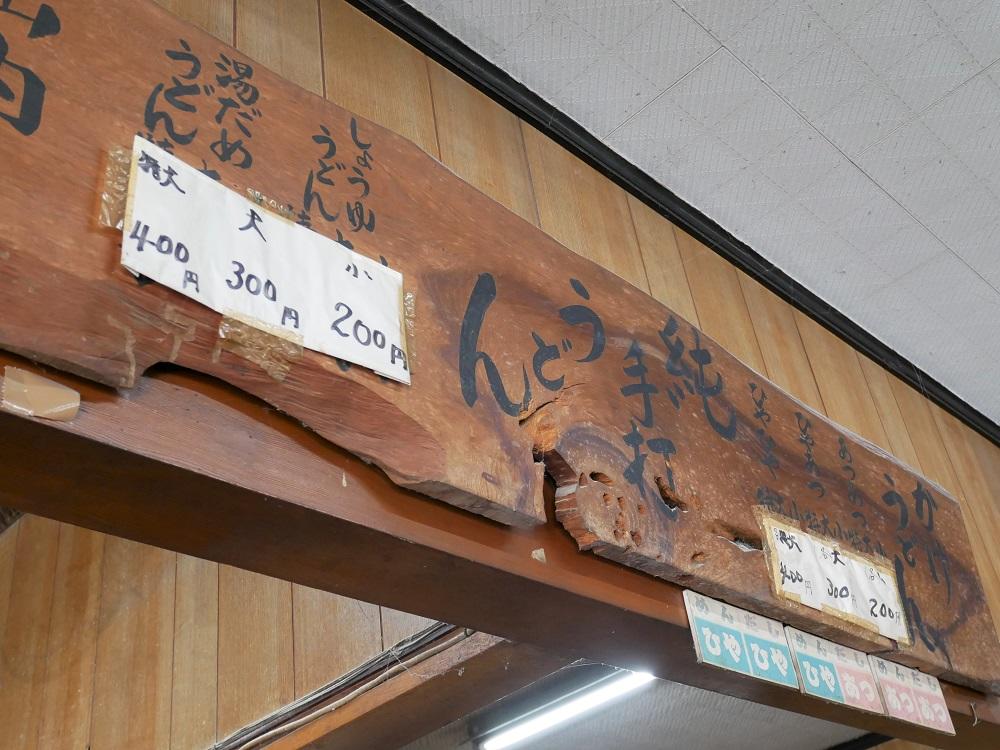 かけ
うどん
あつあつ
ひやあつ
ひやひや
特大 大 小
400円 300円 200円
めんだし
ひやひや
めんだし
ひやあつ
めんだし
あつあつ
純
手打
うどん
しょうゆ
うどん
湯だめ
うどん
特大 大 小
400円 300円 200円